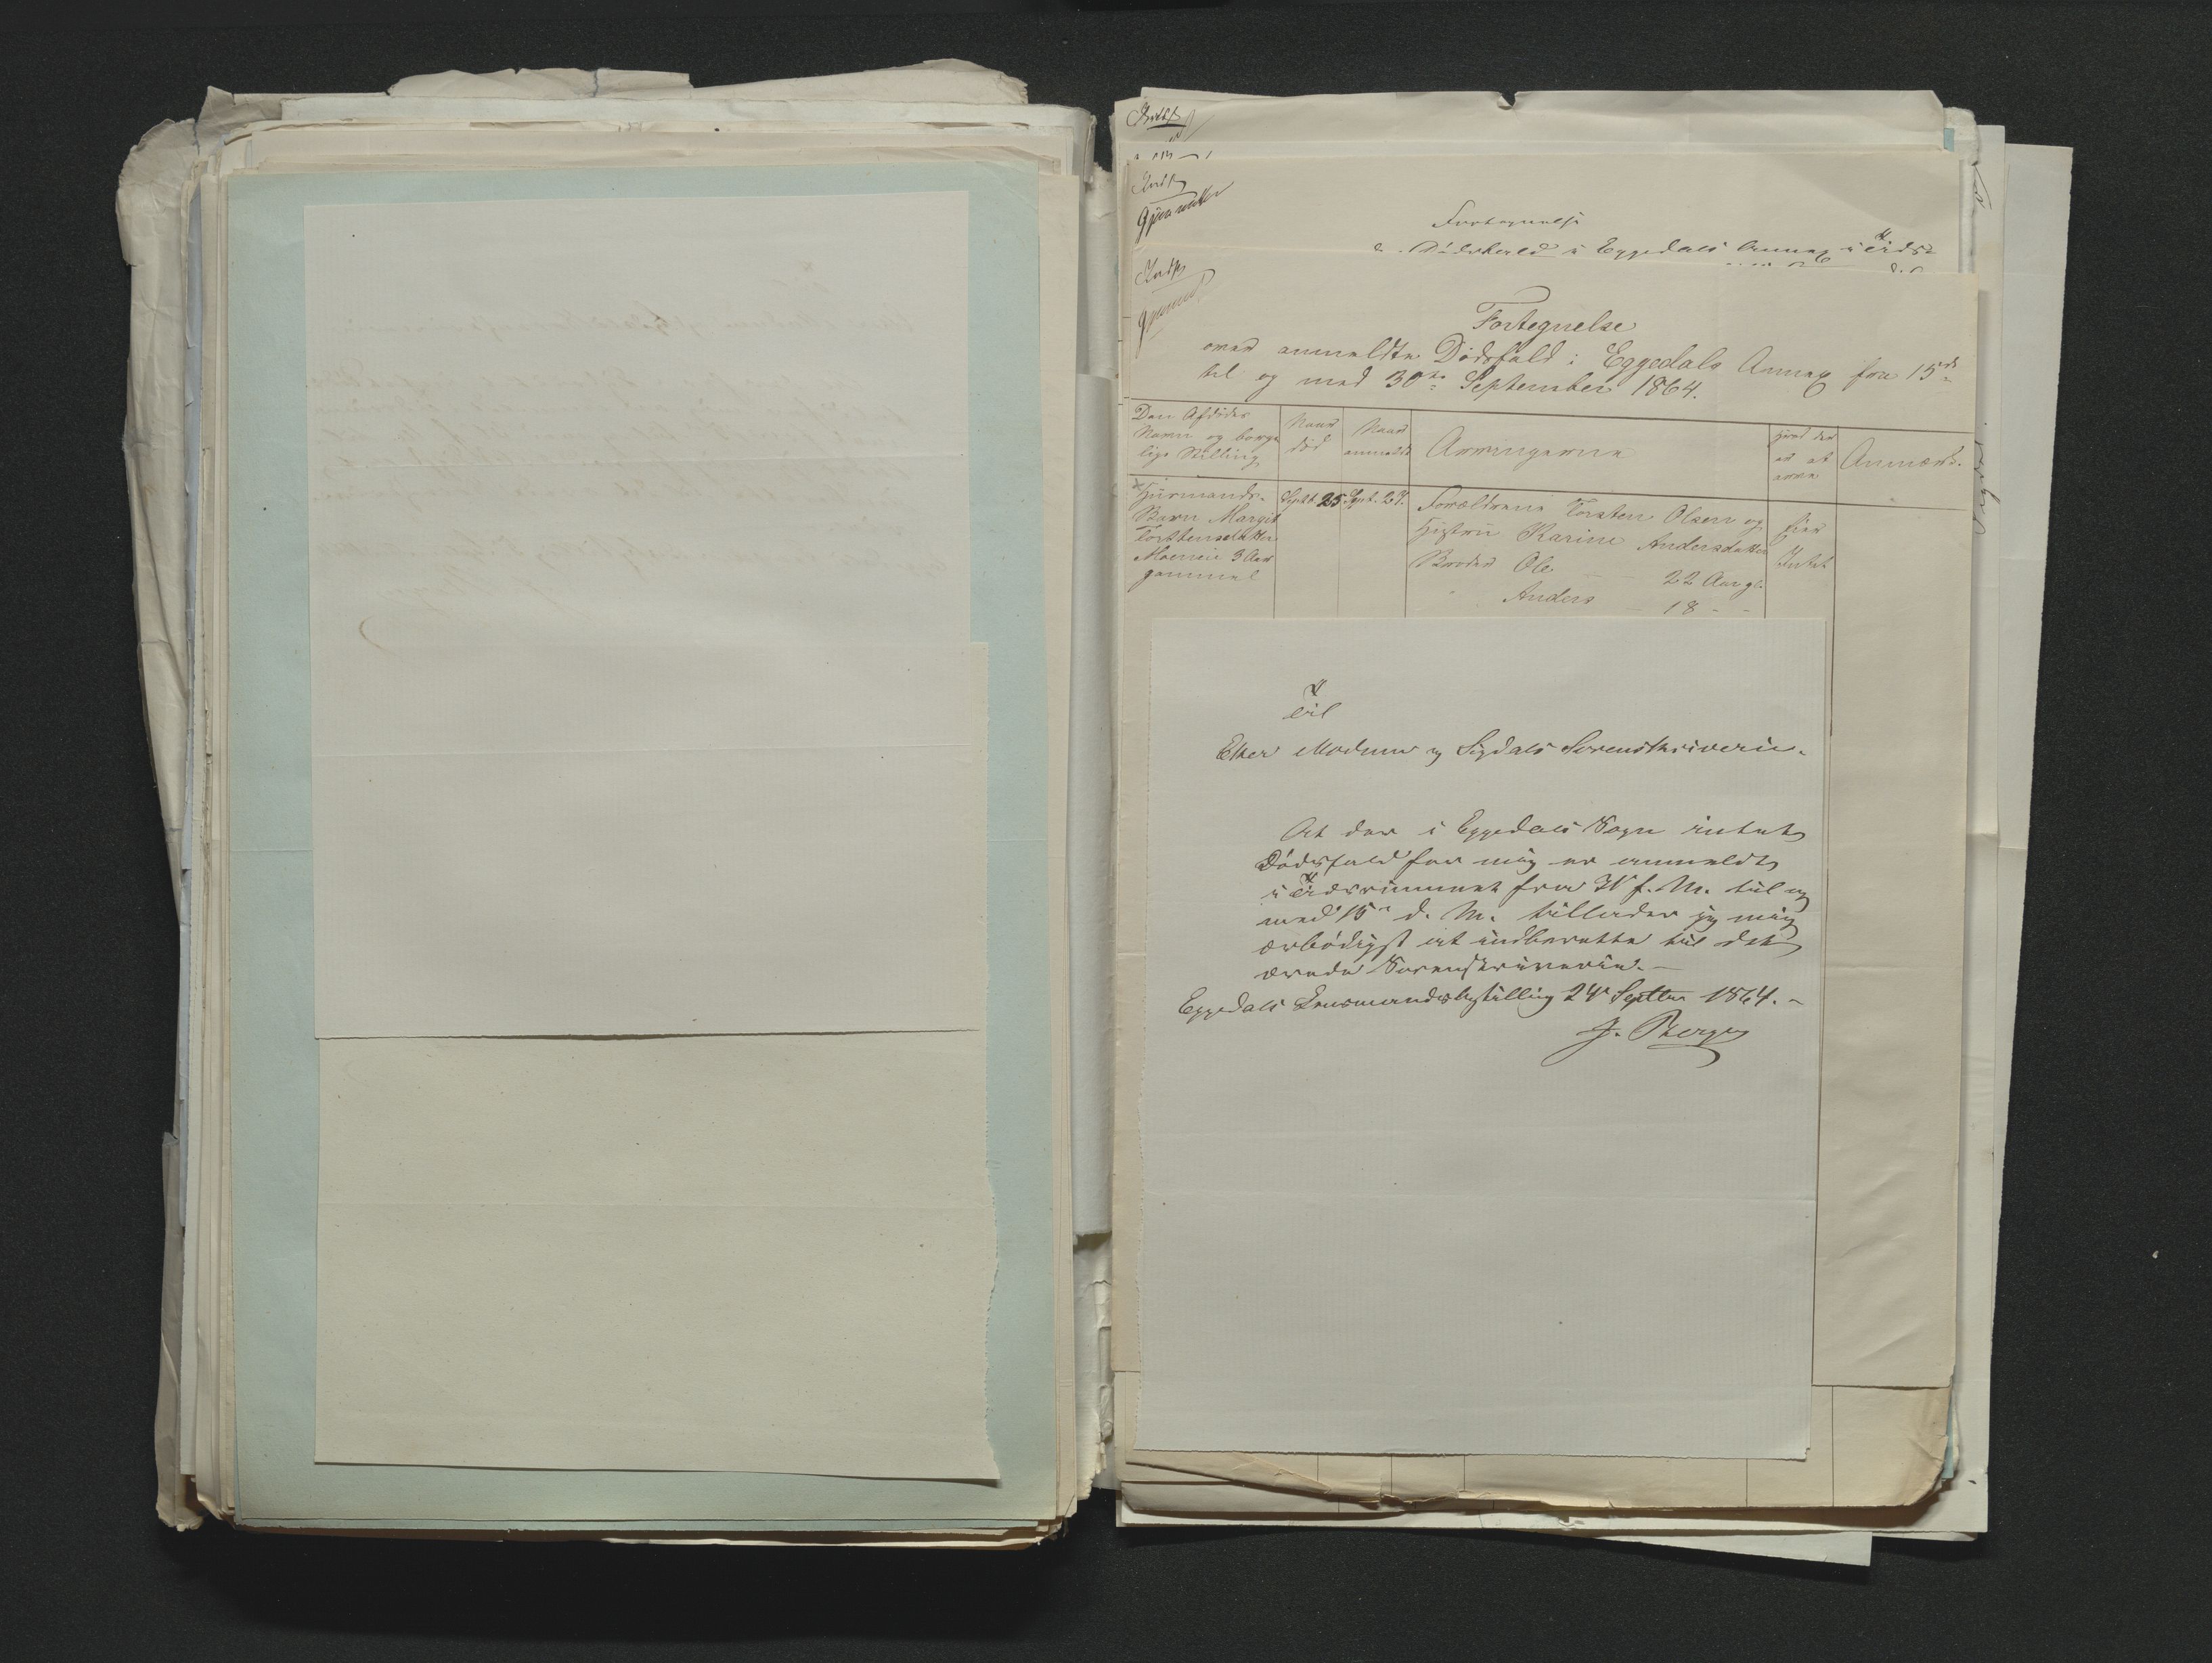 Indf
Indf
Gjennemseet
Fortegnelse
Dødsfald i Eggedals Annex i Tids-
Indf
Fortegnelse
over anmeldte Dødsfald i Eggedals Annex fra 15de
til og med 30te September 1864.
Den Afdødes
Navn og borger
lige Stilling
Naar
død
Naar
anmeldt
Arvingerne
Hvad der
er at
arve
Anmærk.
Huusmands-
Barn Margit
Torstensdatter
Moeneie 3 Aar
gammel
Septb. 25
Sept. 27.
Forældrene Torsten Olsen og
Hustru Karine Andersdatter
Broder Ole — 22 Aar gl.
" Anders — 18 - -
Eier
Intet
Til
Eker Modum og Sigdals Sorenskriveri.
At der i Eggedals Sogn intet
Dødsfald for mig er anmeldt
i Tidsrummet fra f. M. til og
med 15de d. M. tillader jeg mig
ærbødigst at indberette til det
ærede Sorenskriveri.—
Eggedals Lensmandsbestilling 24 Septbr 1864.-
J. Berg